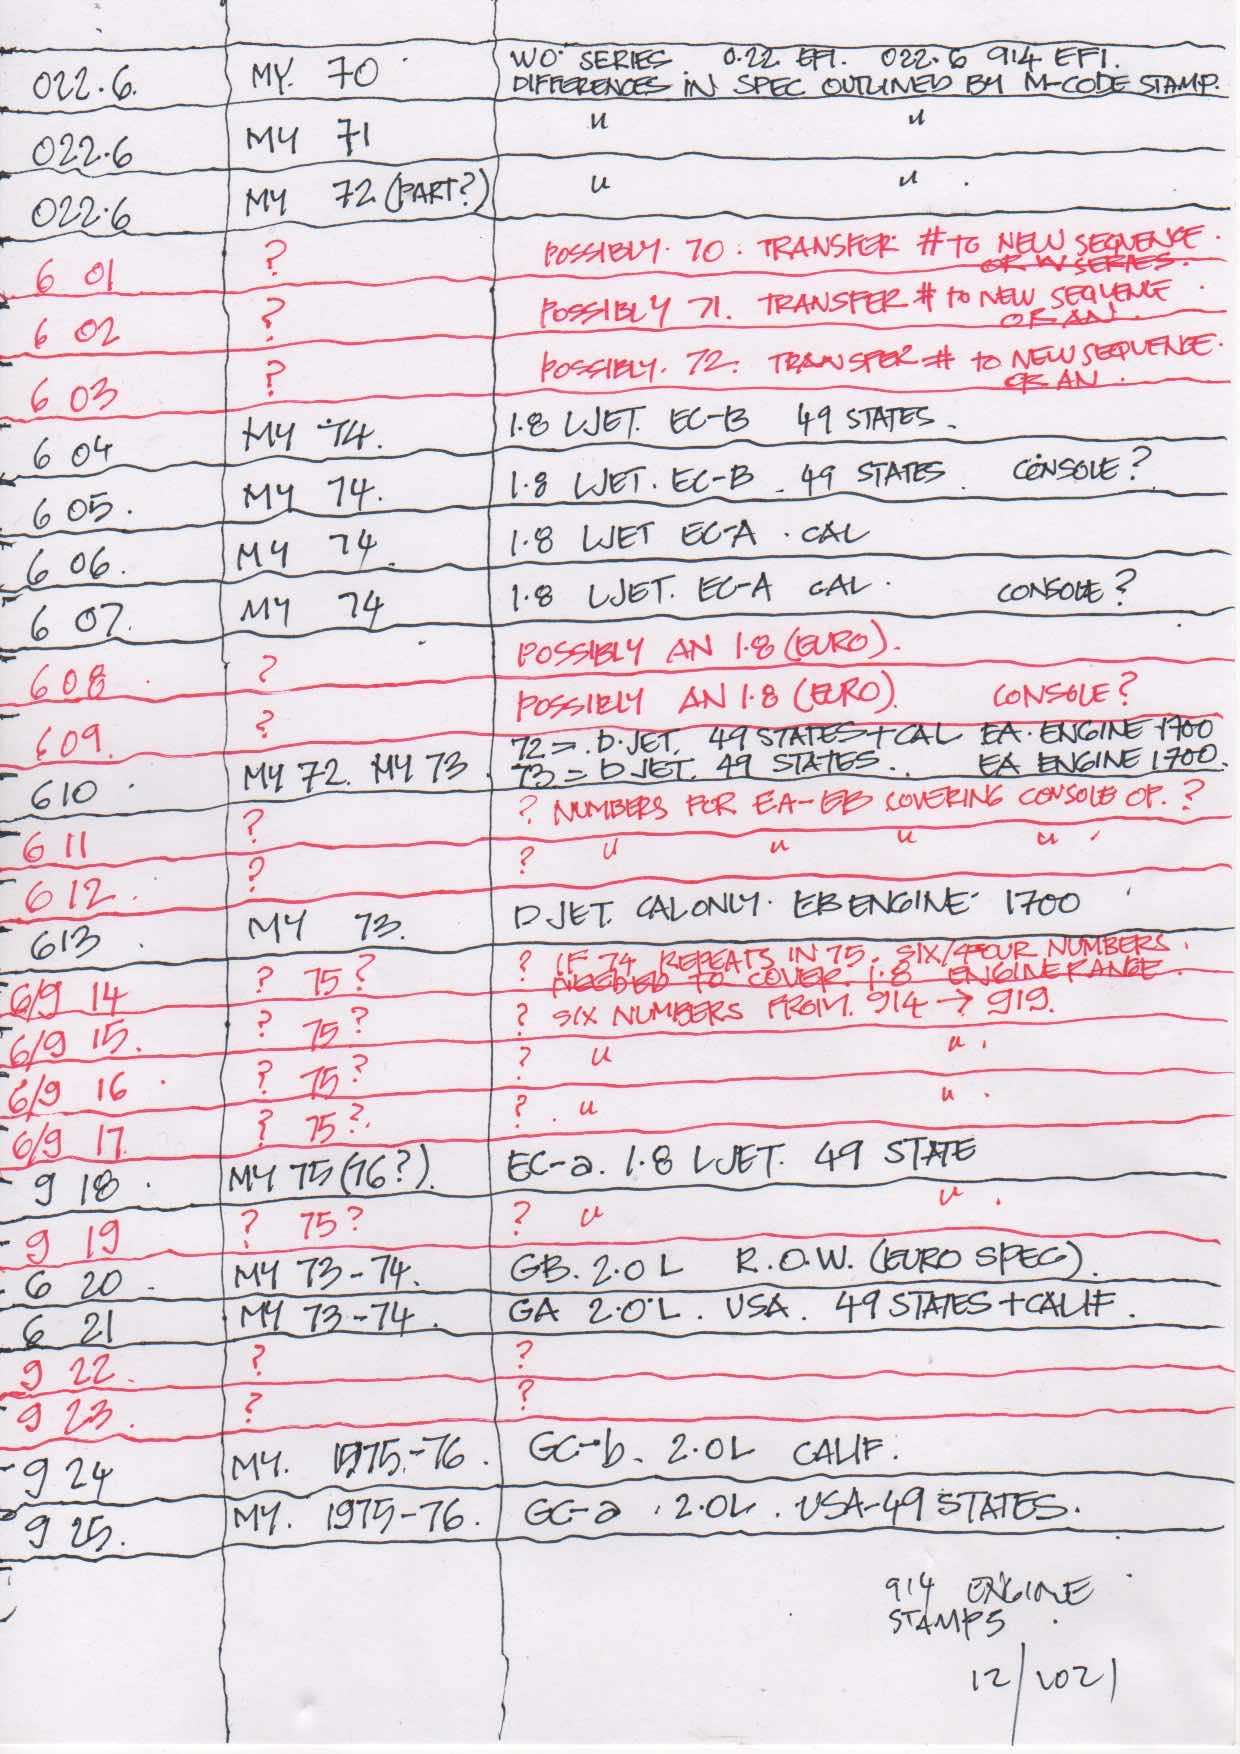 022.6. MY. 70 "WO" SERIES 0.22 EFI. 022.6 914 EFI.
DIFFERENCES IN SPEC OUTLINED BY M-CODE STAMP.
022.6 MY 71 " "
022.6 MY 72 (PART?) " "
6 01 ? POSSIBLY 70. TRANSFER # TO NEW SEQUENCE.
OR W SERIES.
6 02 ? POSSIBLY 71. TRANSFER # TO NEW SEQUENCE
OR AN.
6 03 ? POSSIBLY 72. TRANSFER # TO NEW SEQUENCE.
OR AN.
6 04 MY 74. 1.8 LJET. EC-B 49 STATES.
6 05. MY 74. 1.8 LJET. EC-B 49 STATES. CONSOLE?
6 06. MY 74. 1.8 LJET EC-A. CAL
6 07. MY 74 1.8 LJET. EC-A CAL. CONSOLE?
608 ? POSSIBLY AN 1.8 (EURO).
609. ? POSSIBLY AN 1.8 (EURO). CONSOLE?
72 = D.JET. 49 STATES + CAL EA. ENGINE 1700
610 MY 72. MY 73 73 = D JET. 49 STATES. EA ENGINE 1700.
6 11 ? ? NUMBERS FOR EA-EB COVERING CONSOLE OP. ?
6 12. ? ? " " " "
613 MY 73. D JET. CAL ONLY. EB ENGINE 1700
? IF 74 REPEATS IN 75. SIX/4FOUR NUMBERS.
6/9 14 ? 75? NEEDED TO COVER 1.8 ENGINE RANGE.
6/9 15. ? 75? ? SIX NUMBERS FROM. 914 → 919.
6/9 16 ? 75? ? " "
6/9 17. ? 75?. ? " "
9 18. MY 75 (76?). EC-a. 1.8 LJET. 49 STATE
9 19 ? 75? ? " "
6 20 MY 73-74. GB. 2.0 L R.O.W. (EURO SPEC).
6 21 MY 73-74. GA 2.0 L. USA. 49 STATES + CALIF.
9 22. ? ?
9 23. ? ?
9 24 MY. 1975-76. GC-b. 2.0L CALIF.
9 25. MY. 1975-76. GC-a. 2.0L. USA-49 STATES.
914 ENGINE
STAMPS.
12/2021